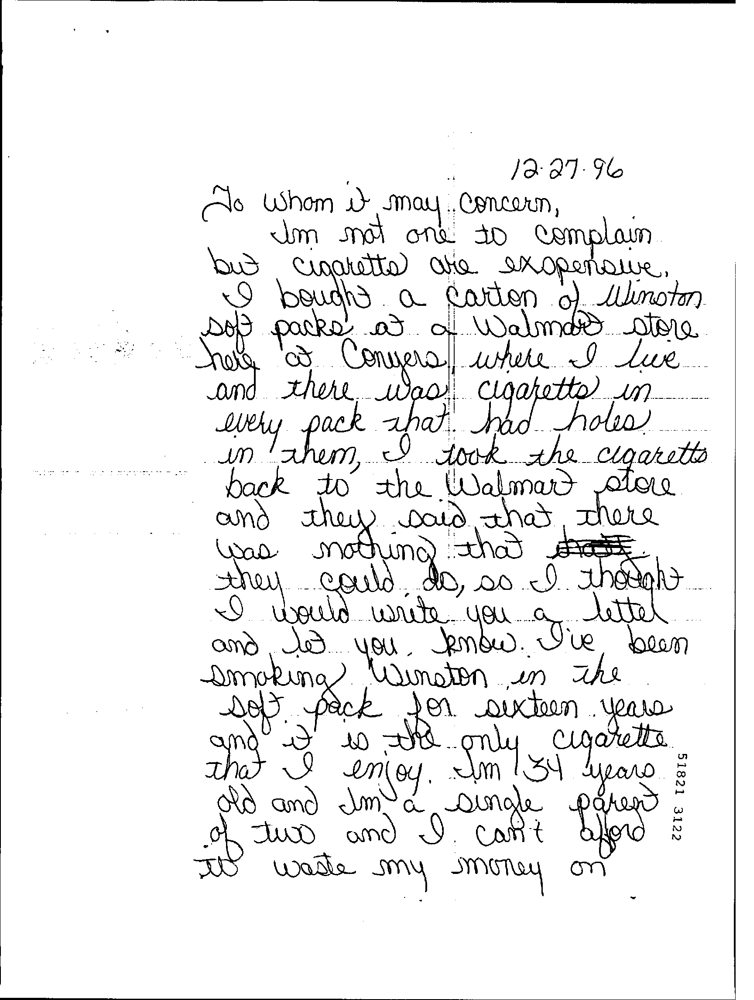 12-27-96
To whom it may concern,
Im not one to complain
but cigaretts are exspensive.
I bought a carton of Winston
soft packs at a Walmart store
here at Conyers, where I live
and there was cigaretts in
every pack that had holes
in them, I took the cigaretts
back to the Walmart store
and they said that there
was nothing that
they could do, so I thought
I would write you a letter
and let you know. I've been
smoking Winston in the
soft pack for sixteen years
and it is the only cigarette
that I enjoy. Im 34 years
old and Im a single parent
of two and I can't afford
to waste my money on
51821 3122